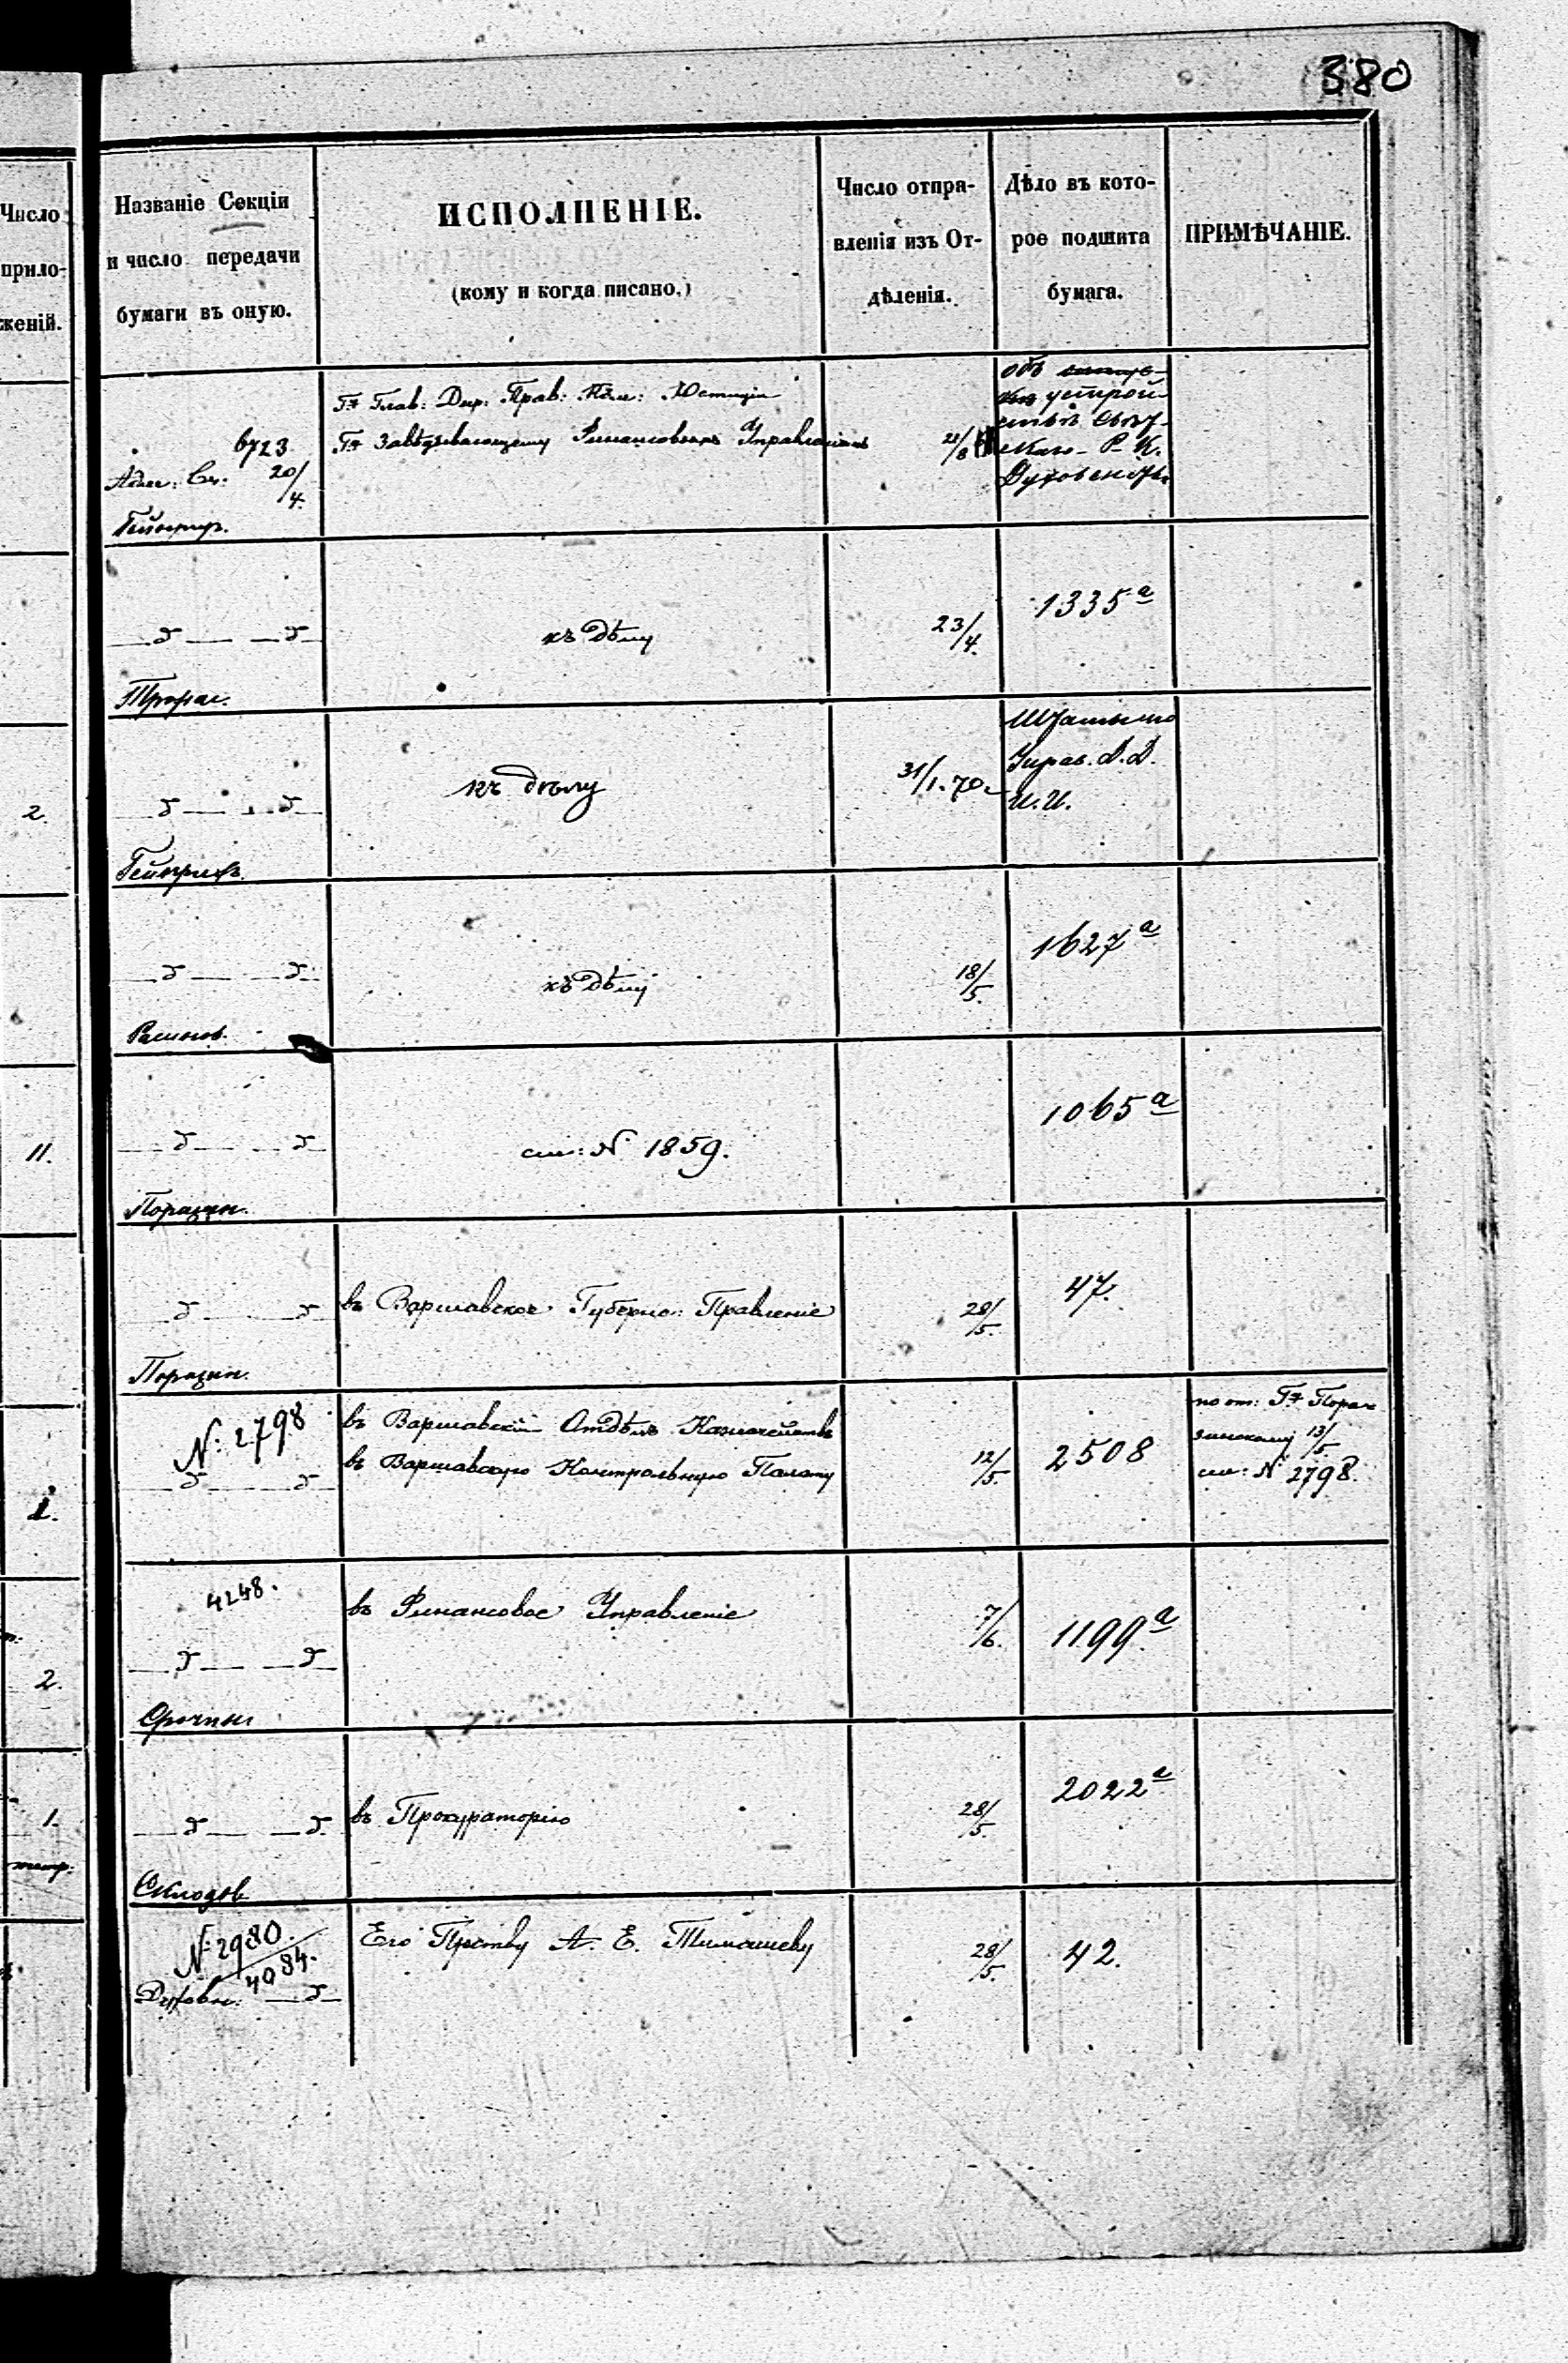 380
Число
прило-
женій.
Названіе Секціи
и число передачи
бумаги въ оную.
ИСПОЛНЕНІЕ.
(кому и когда писано.)
Число отпра-
вленія изъ От-
дѣленія.
Дѣло въ кото-
рое подшита
бумага.
ПРИМѢЧАНІЕ.
6723
Адм: Сч: 20/4.
Гл: Глав: Дир: Прав: Ком: Юстиціи
Гну Завѣдывающему Финансовымъ Управленіемъ
21/8
объ
устрой-
ствѣ Свѣт-
скаго Р. К.
Духовенства
къ дѣлу
23/4.
1335а
2.
къ дѣлу
31/1. 70
Управ. Д. Д.
И. И.
Гейнрихъ.
къ дѣлу
18/5.
1627а
11.
см: N 1859.
1065а
Поразин.
въ Варшавское Губерн: Правленіе
28/5.
47.
Поразин.
1.
N: 2798
въ Варшавскій Отдѣлъ Казначейства
въ Варшавскую Контрольную Палату
12/5.
2508
по от: Гну Пораз
зинскому 13/5
см: N 2798.
2.
4248.
въ Финансовое Управленіе
7/6.
1199а
1.
въ Прокураторію
28/5.
2022а
N: 2980.
4084.
Духовн:
Его Прству А. Е. Тимашеву
28/5.
42.